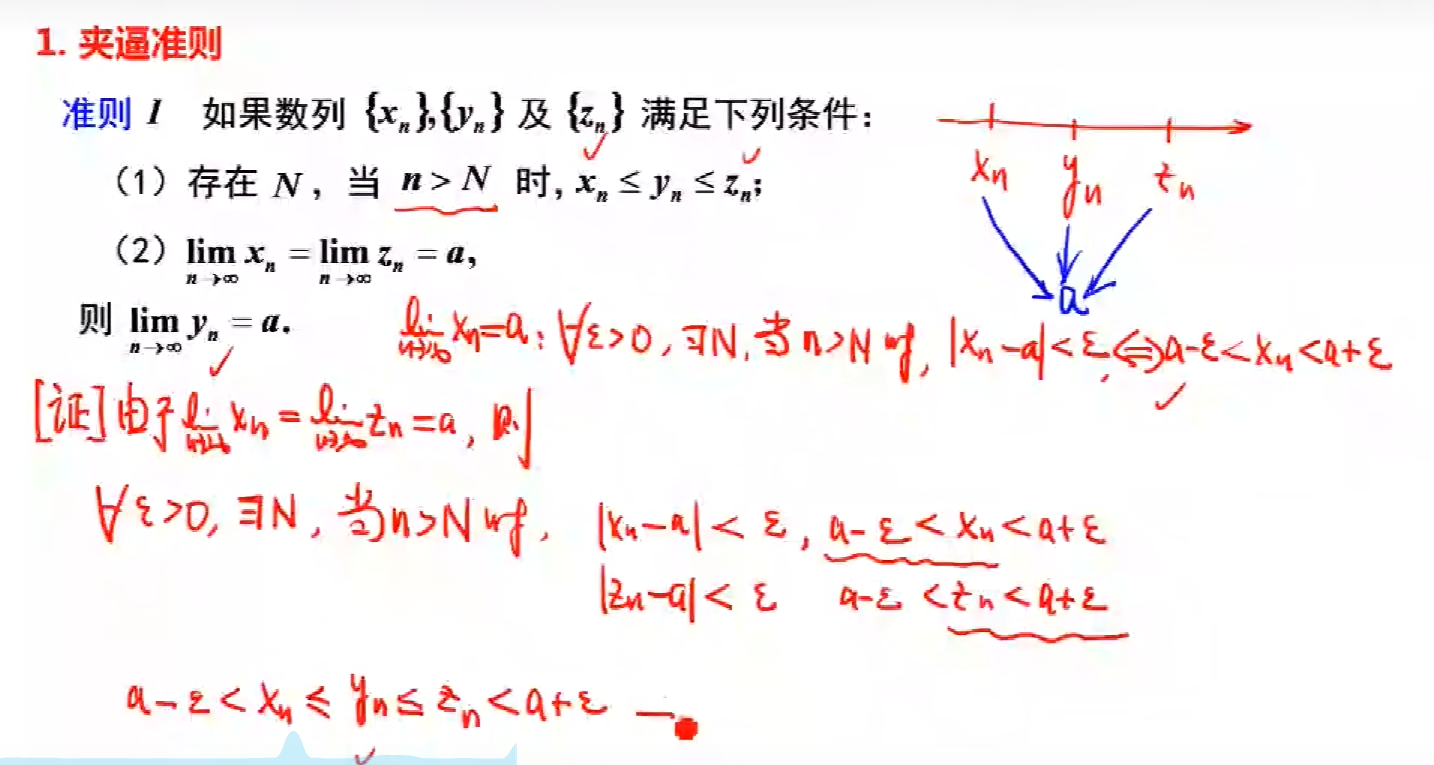 1. 夹逼准则
准则 I 如果数列 {xₙ},{yₙ} 及 {zₙ} 满足下列条件：
（1）存在 N，当 n > N 时, xₙ ≤ yₙ ≤ zₙ;
xₙ yₙ zₙ
（2）lim_{n→∞} xₙ = lim_{n→∞} zₙ = a,
a
则 lim_{n→∞} yₙ = a.
lim_{n→∞} xₙ=a: ∀ε>0, ∃N, 当 n>N 时, |xₙ-a|<ε ⇔ a-ε<xₙ<a+ε
[证] 由于 lim_{n→∞} xₙ = lim_{n→∞} zₙ = a, 则
∀ε>0, ∃N, 当 n>N 时, |xₙ-a|<ε, a-ε<xₙ<a+ε
|zₙ-a|<ε a-ε<zₙ<a+ε
a-ε<xₙ≤yₙ≤zₙ<a+ε